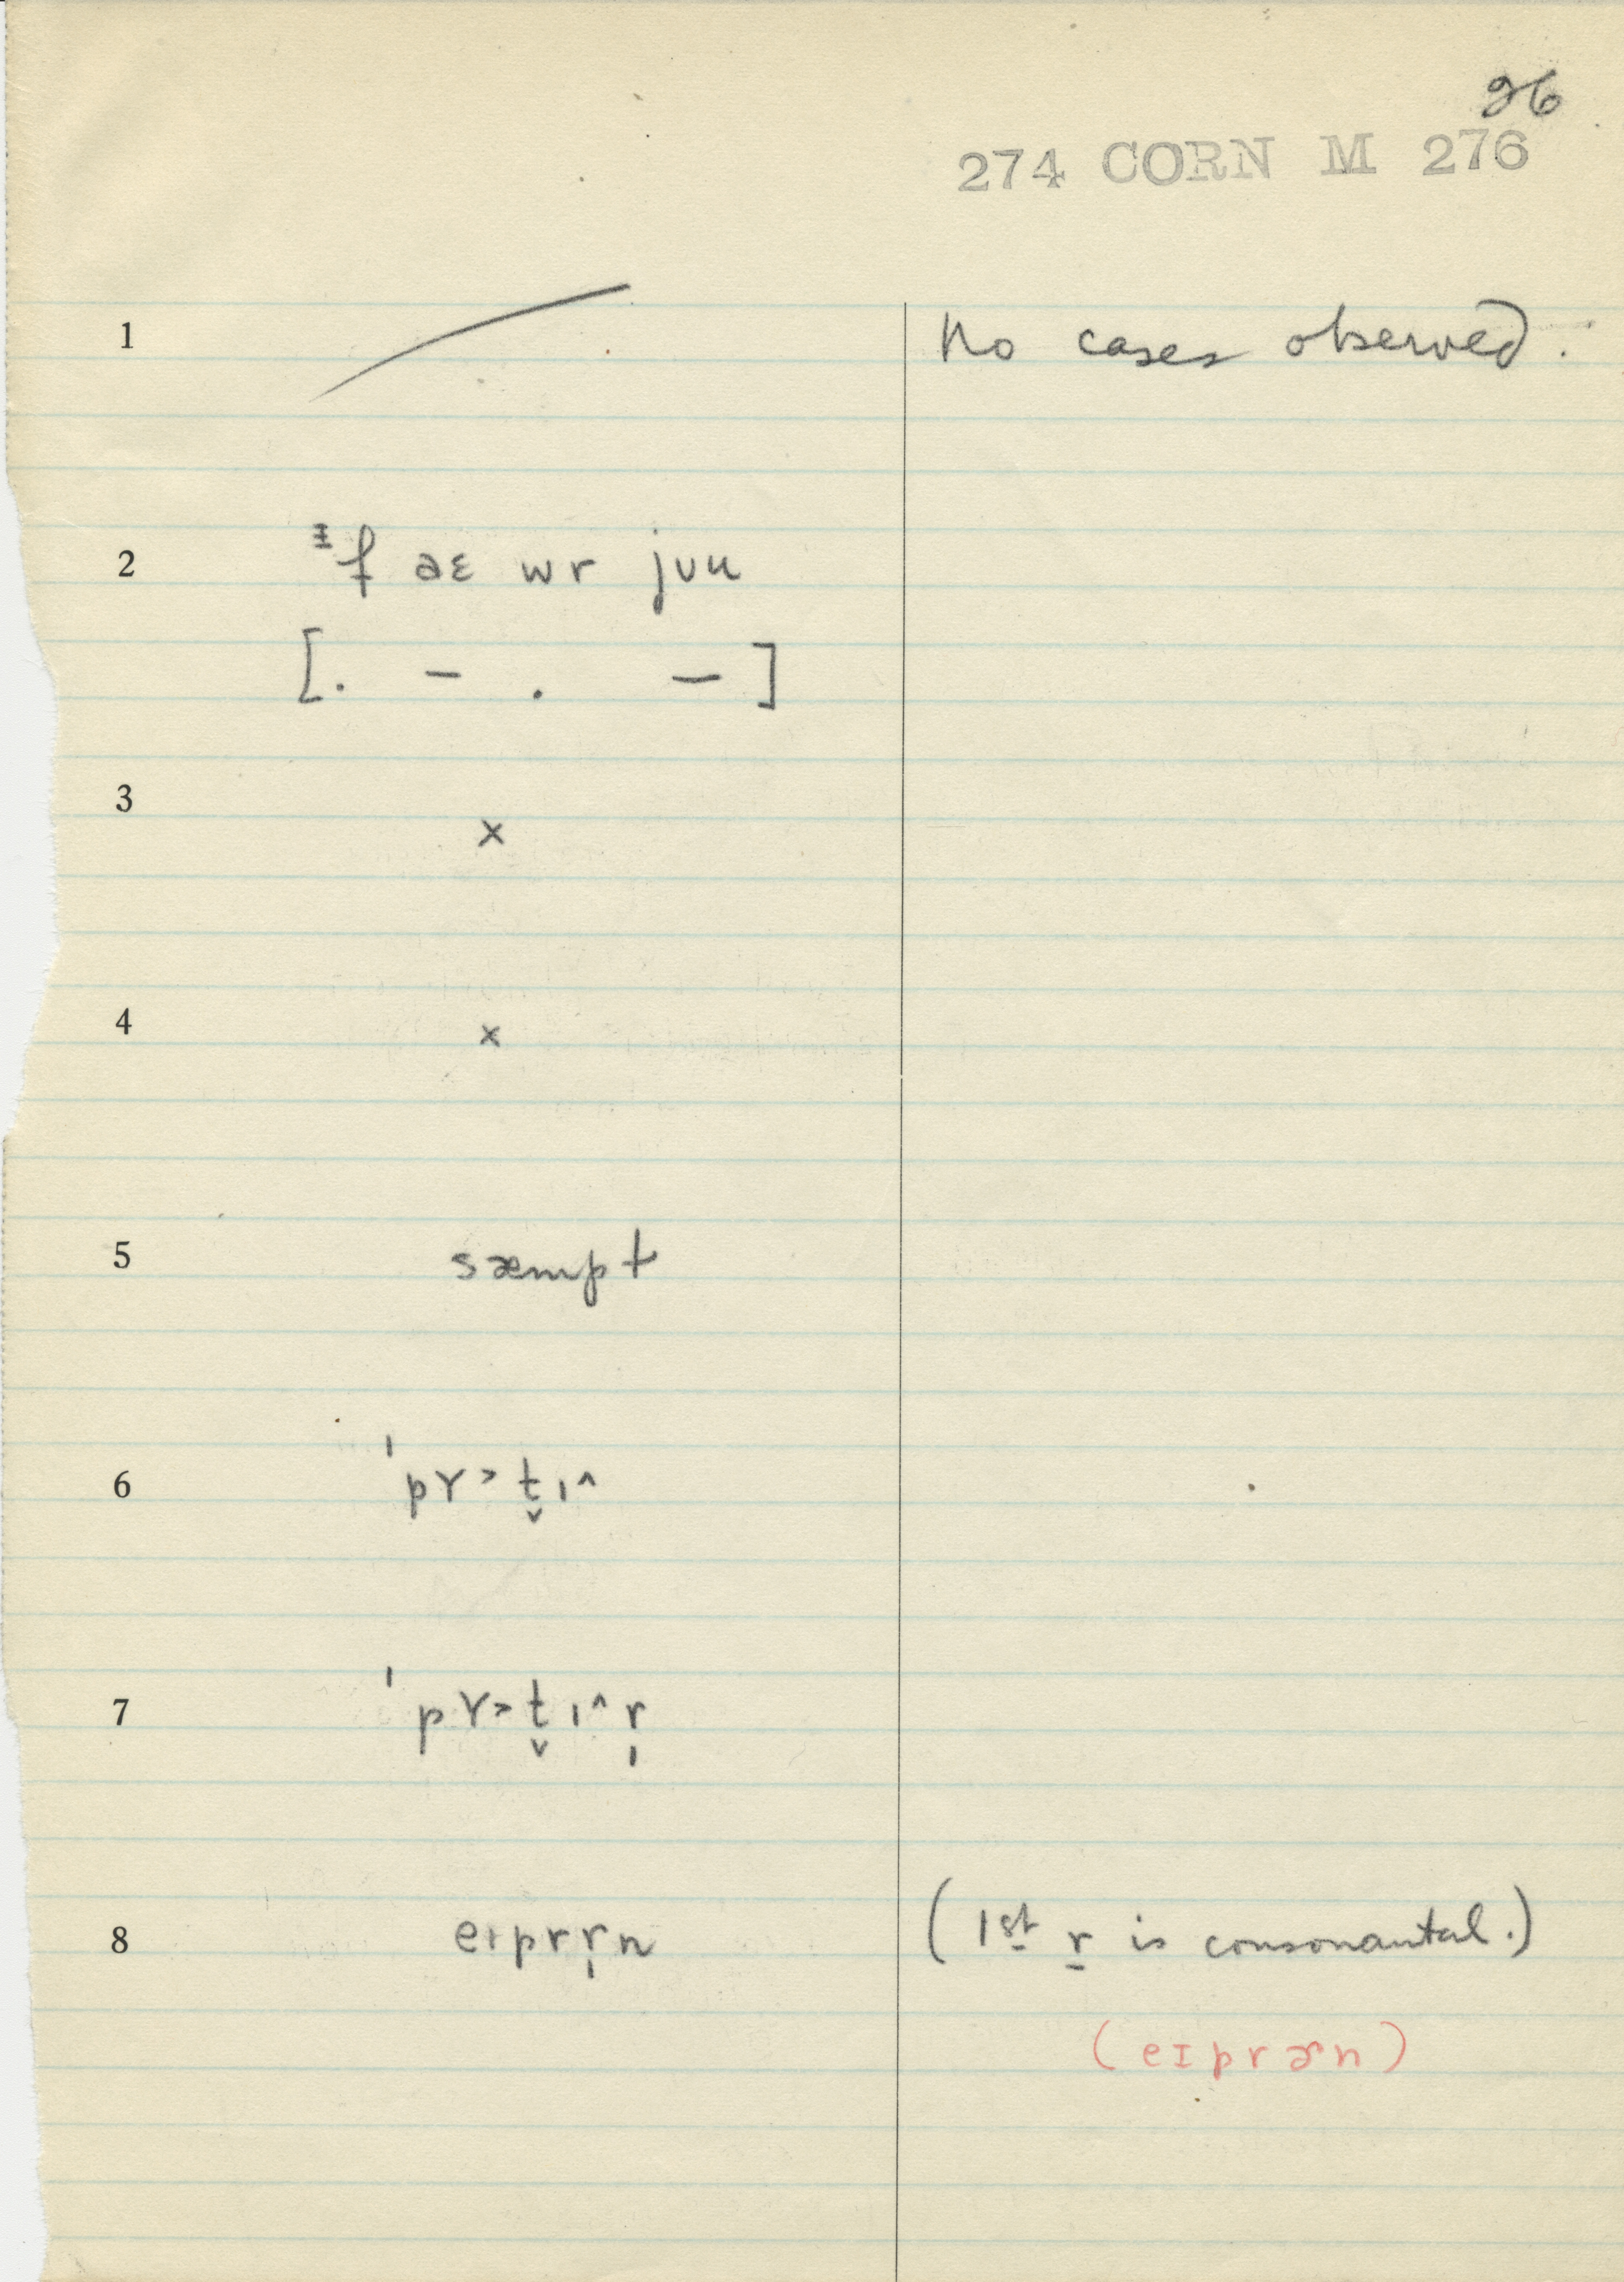 26
274 CORN M 276
1 No cases observed.
2 ᶦf aɛ wr jʊu
[. – . –]
3 ×
4 ×
5 sæmpt
6 ˈpɤ˃t̬ɪ˄
7 ˈpɤ˃t̬ɪ˄r̩
8 eɪprr̩n (1st r is consonantal.)
(eɪprɚn)